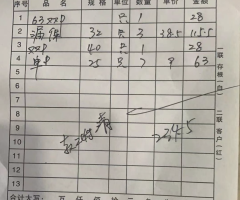 序号 品名 规格 单位 数量 单价 金额
1 63 只 1 28
2 漏保 32 只 3 38.5 115.5
3 40 只 1 28
4 单P 25 只 7 9 63
5
6
7
8
9
10 234.5
11
12
13
合计大写: 万 仟 佰 拾 元
一联存根(白)
二联客户(红)